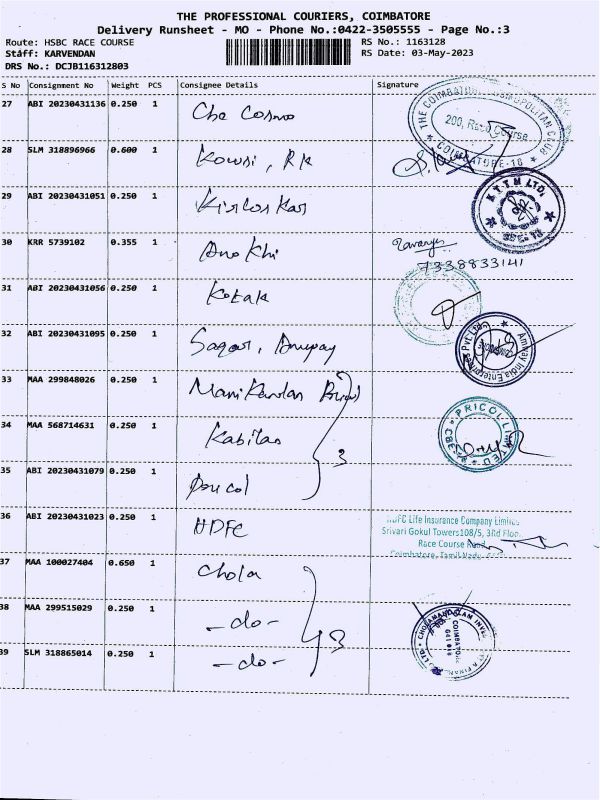 THE PROFESSIONAL COURIERS, COIMBATORE
Delivery Runsheet - MO - Phone No.:0422-3505555 - Page No.:3
Route: HSBC RACE COURSE
RS No.: 1163128
Staff: KARVENDAN
RS Date: 03-May-2023
DRS No.: DCJB116312803
S No Consignment No Weight PCS Consignee Details Signature
27 ABI 20230431136 0.250 1 Che Cosmo
THE COIMBATORE COSMOPOLITAN CLUB
200, Race Course
COIMBATORE-18
28 SLM 318896966 0.600 1 Kowsi, RK
29 ABI 20230431051 0.250 1 Kirloskar
KTTM LTD.
30 KRR 5739102 0.355 1 Anokhi
7338833141
31 ABI 20230431056 0.250 1 Kotak
32 ABI 20230431095 0.250 1 Sagar, Anupay
Amway India Enterprises Pvt Ltd
33 MAA 299848026 0.250 1 Manikandan
34 MAA 568714631 0.250 1 Kabilan
3
PRICOL LIMITED
CBE
35 ABI 20230431079 0.250 1 Pricol
36 ABI 20230431023 0.250 1 HDFC
HDFC Life Insurance Company Limited
Srivari Gokul Towers108/5, 3Rd Floor
Race Course Road
Coimbatore, Tamil Nadu
37 MAA 100027404 0.650 1 Chola
38 MAA 299515029 0.250 1 -do-
3
COIMBATORE
641 018
39 SLM 318865014 0.250 1 -do-